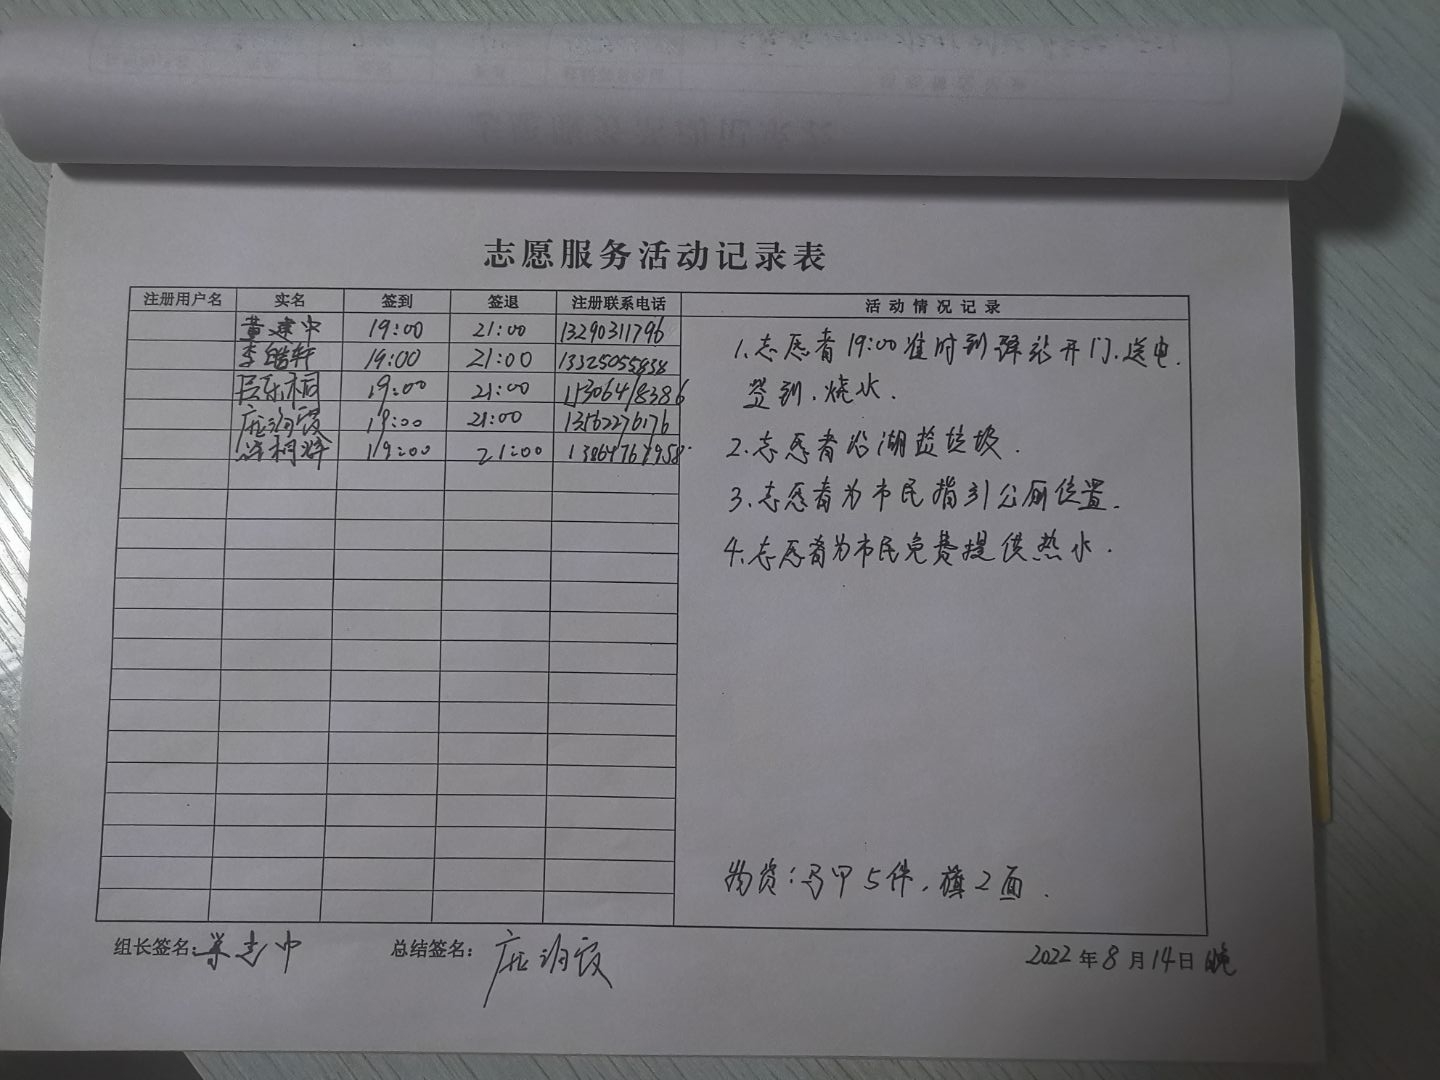 志愿服务活动记录表
注册用户名 实名 签到 签退 注册联系电话 活动情况记录
黄建中 19:00 21:00 13290311796
李皓轩 19:00 21:00 13325055838
19:00 21:00
19:00 21:00 13162276176
19:00 21:00
1.志愿者19:00准时到驿站开门.送电.
签到.烧水.
2.志愿者沿湖捡垃圾.
3.志愿者为市民指引公厕位置.
4.志愿者为市民免费提供热水.
物资:马甲5件,旗2面.
组长签名: 总结签名: 2022年8月14日晚